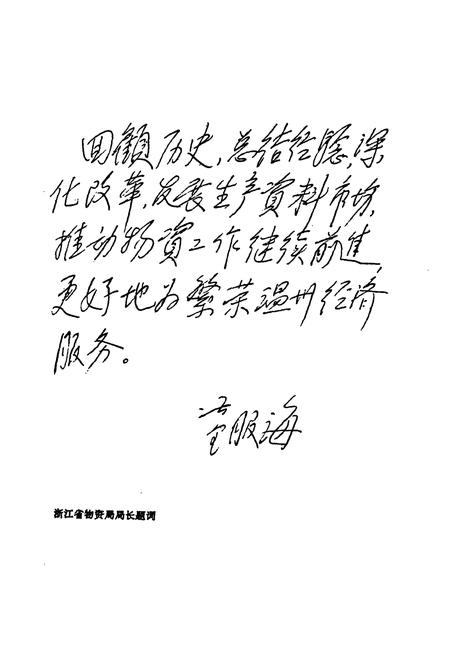 回顧历史，总结经驗，深
化改革，发展生产資料市场，
推动物資工作继续前进，
更好地为繁荣温州经济
服务。
服海
浙江省物资局局长题词